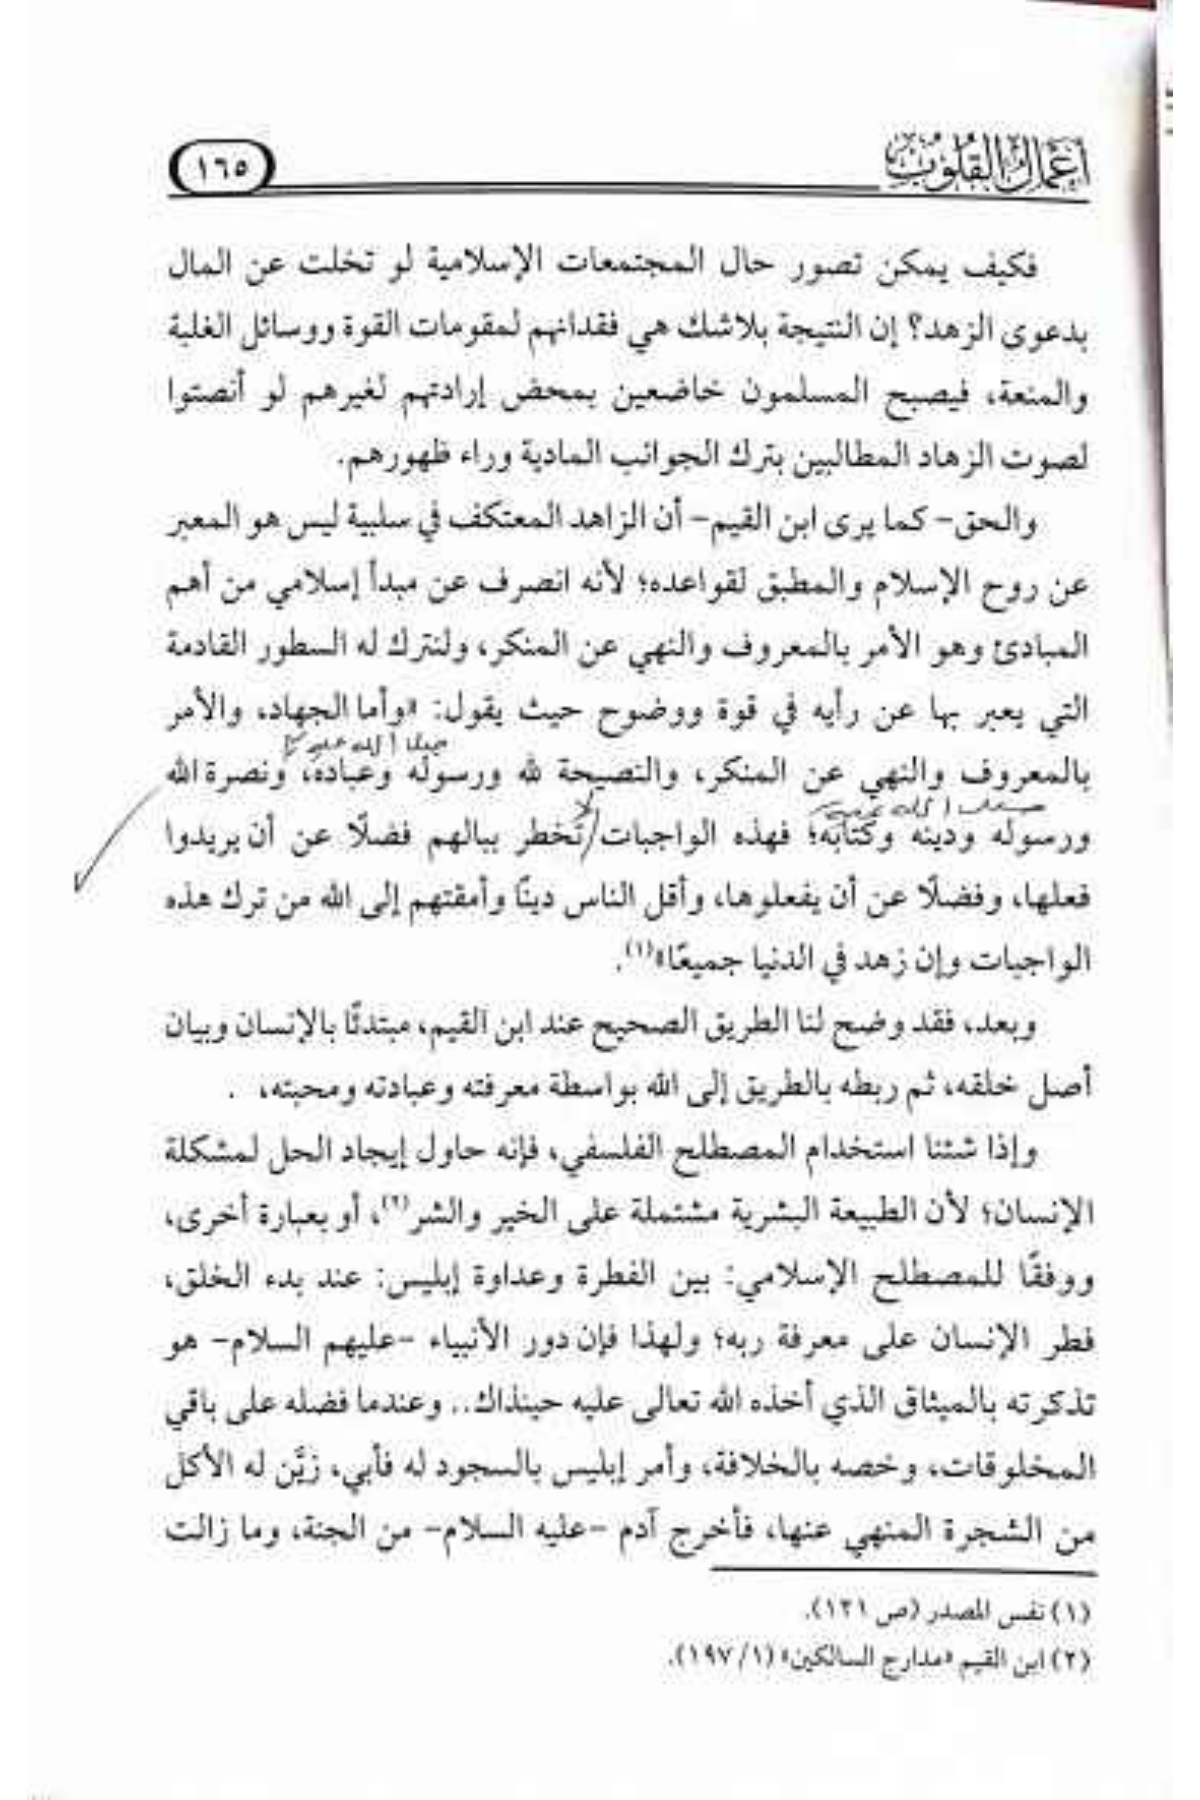 أعمال القلوب
١٦٥
فكيف يمكن تصور حال المجتمعات الإسلامية لو تخلت عن المال
بدعوى الزهد؟ إن النتيجة بلاشك هي فقدانهم لمقومات القوة ووسائل الغلبة
والمنعة، فيصبح المسلمون خاضعين بمحض إرادتهم لغيرهم لو أنصتوا
لصوت الزهاد المطالبين بترك الجوانب المادية وراء ظهورهم.
والحق- كما يرى ابن القيم- أن الزاهد المعتكف في سلبية ليس هو المعبر
عن روح الإسلام والمطبق لقواعده؛ لأنه انصرف عن مبدأ إسلامي من أهم
المبادئ وهو الأمر بالمعروف والنهي عن المنكر، ولنترك له السطور القادمة
التي يعبر بها عن رأيه في قوة ووضوح حيث يقول: «وأما الجهاد، والأمر
صلى الله عليه
بالمعروف والنهي عن المنكر، والنصيحة لله ورسوله وعباده، ونصرة الله
لا
ورسوله ودينه وكتابه؛ فهذه الواجبات/تخطر ببالهم فضلًا عن أن يريدوا
فعلها، وفضلًا عن أن يفعلوها، وأقل الناس دينًا وأمقتهم إلى الله من ترك هذه
الواجبات وإن زهد في الدنيا جميعًا»(١).
وبعد، فقد وضح لنا الطريق الصحيح عند ابن القيم، مبتدئًا بالإنسان وبيان
أصل خلقه، ثم ربطه بالطريق إلى الله بواسطة معرفته وعبادته ومحبته، .
وإذا شئنا استخدام المصطلح الفلسفي، فإنه حاول إيجاد الحل لمشكلة
الإنسان؛ لأن الطبيعة البشرية مشتملة على الخير والشر(٢)، أو بعبارة أخرى،
ووفقًا للمصطلح الإسلامي: بين الفطرة وعداوة إبليس: عند بدء الخلق،
فطر الإنسان على معرفة ربه؛ ولهذا فإن دور الأنبياء -عليهم السلام- هو
تذكرته بالميثاق الذي أخذه الله تعالى عليه حينذاك.. وعندما فضله على باقي
المخلوقات، وخصه بالخلافة، وأمر إبليس بالسجود له فأبى، زيَّن له الأكل
من الشجرة المنهي عنها، فأخرج آدم -عليه السلام- من الجنة، وما زالت
(١) نفس المصدر (ص ١٣١).
(٢) ابن القيم «مدارج السالكين» (١/ ١٩٧).